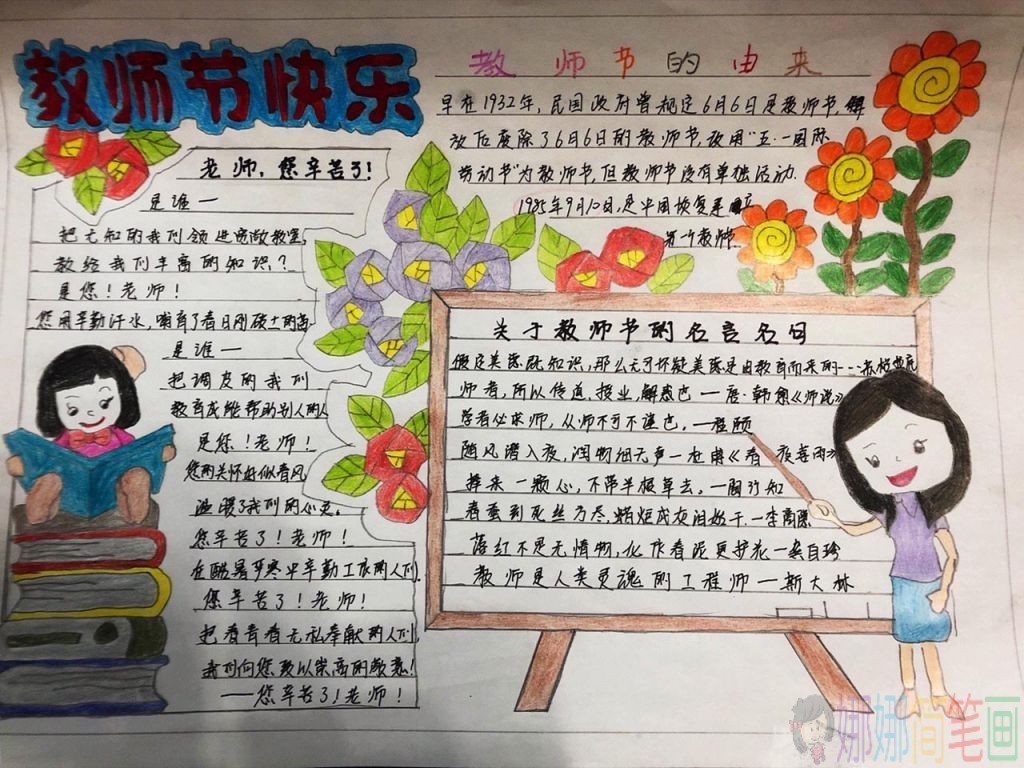 教师节快乐
老师，您辛苦了！
是谁一
把无知的我们领进宽敞教室，
教给我们丰富的知识？
是您！老师！
您用辛勤汗水，哺育了春日刚破土的
是谁一
把调皮的我们
教育成能帮助别人的人
是您！老师！
您的关怀好似春风
温暖了我们的心灵。
您辛苦了！老师！
在酷暑严寒中辛勤工作的人们
您辛苦了！老师！
把青春无私奉献的人们，
我们向您致以崇高的敬意！
——您辛苦了！老师！
教师节的由来
早在1932年，民国政府曾规定6月6日是教师节，解
放后废除了6月6日的教师节，改用“五·一国际
劳动节”为教师节，但教师节没有单独活动.
1985年9月10日，是中国恢复建立
第一个教师
关于教师节的名言名句
假定美德既知识，那么无可怀疑美德是由教育而来的---苏格拉底
师者，所以传道，授业，解惑也一唐·韩愈《师说》
学者必求师，从师不可不谨也，一程颐
随风潜入夜，润物细无声一杜甫《春夜喜雨》
捧来一颗心，不带半根草去，一陶行知
春蚕到死丝方尽，蜡炬成灰泪始干.一李商隐
落红不是无情物，化作春泥更护花一龚自珍
教师是人类灵魂的工程师一斯大林
娜娜简笔画